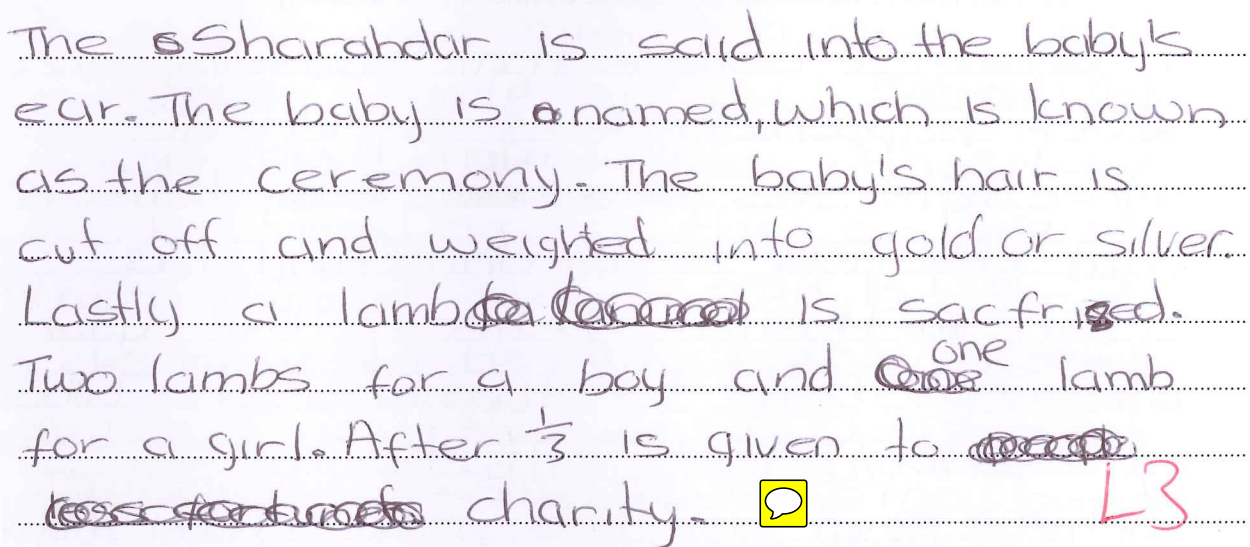 The Sharahdar is said into the baby's
ear. The baby is named, which is known
as the ceremony. The baby's hair is
cut off and weighted into gold or silver.
Lastly a lamb is sacfrised.
Two lambs for a boy and one lamb
for a girl. After 1/3 is given to
charity.
L3